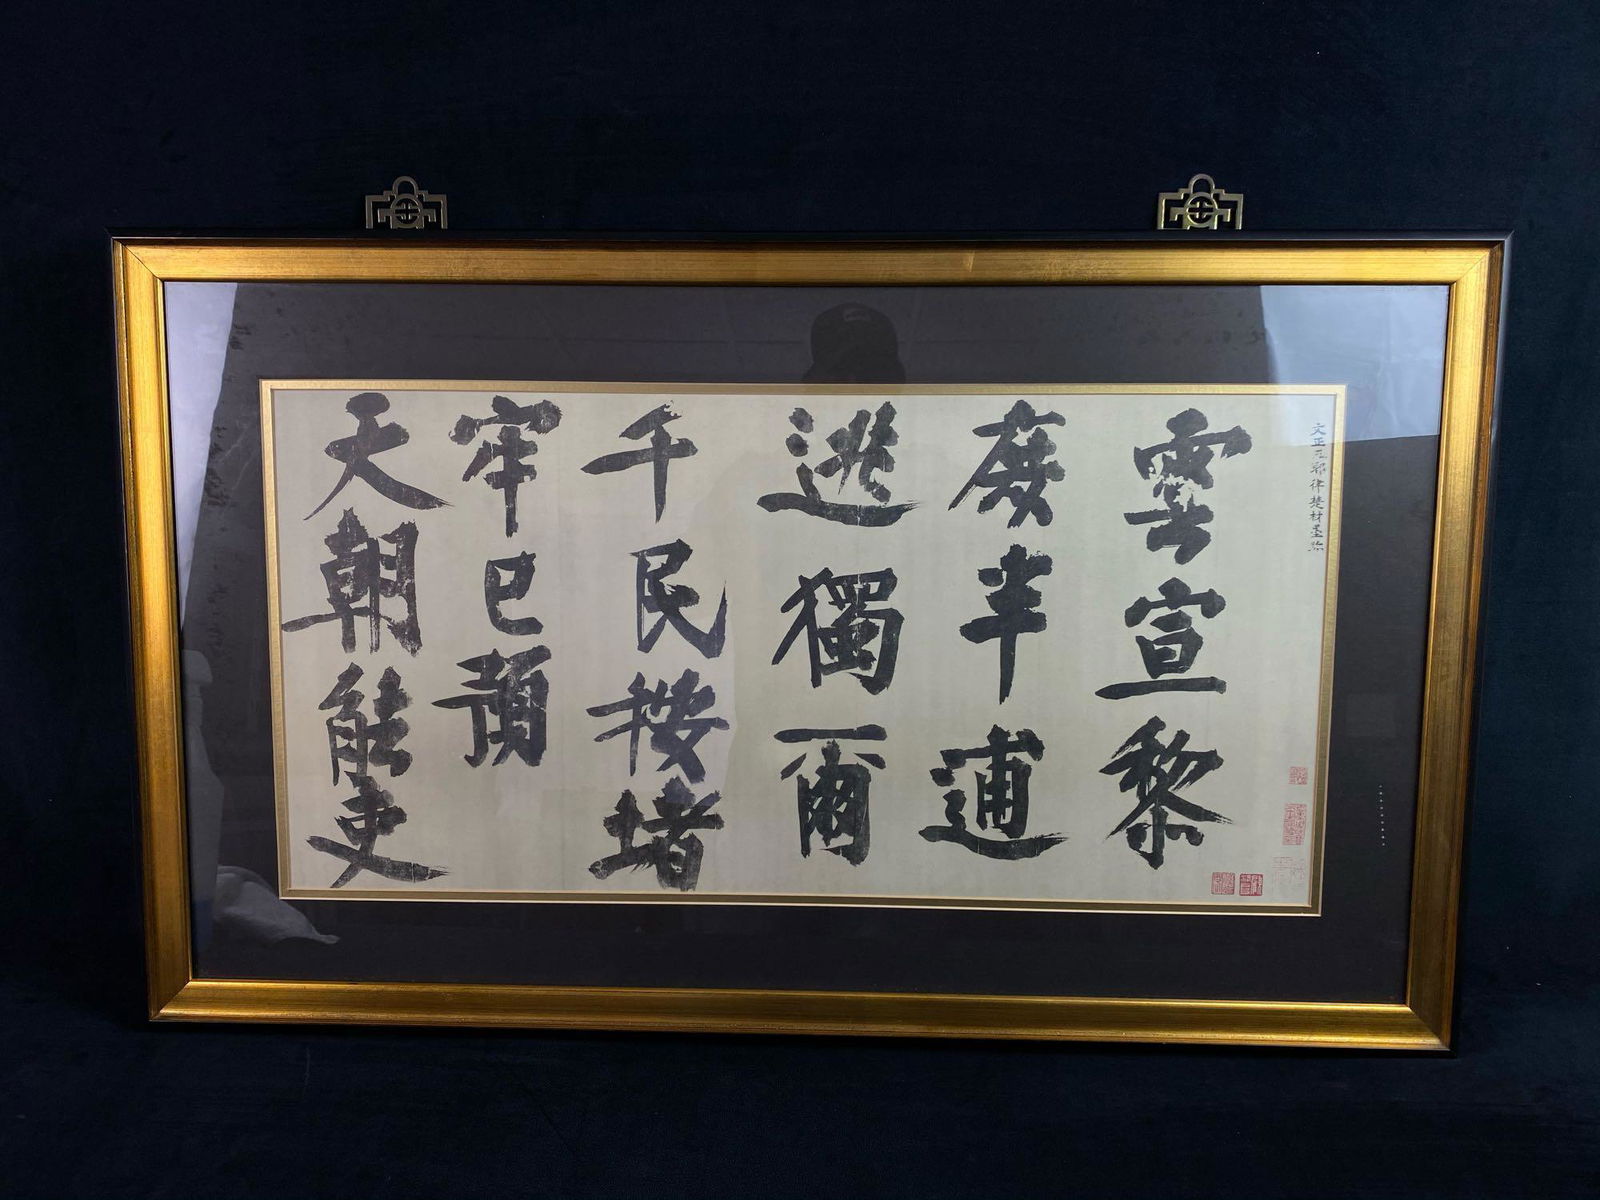 文正王耶律楚材墨跡
雲宣黎
庶半逋
逃獨爾
千民按堵
牢已預
天朝能吏